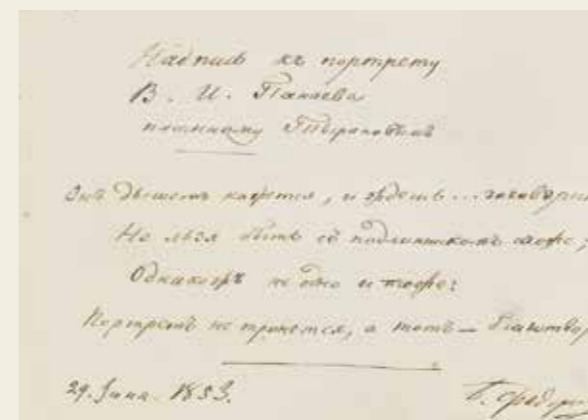 Надпись къ портрету
В. И. Панаева
Онъ дышетъ кажется, и ждешь... заговорит
Не льзя быть съ подлинникомъ схоже;
Однакожъ не одно и тоже:
Портретъ не тронется, а тотъ — благотвор
29. Июня. 1853.
Б. Федор